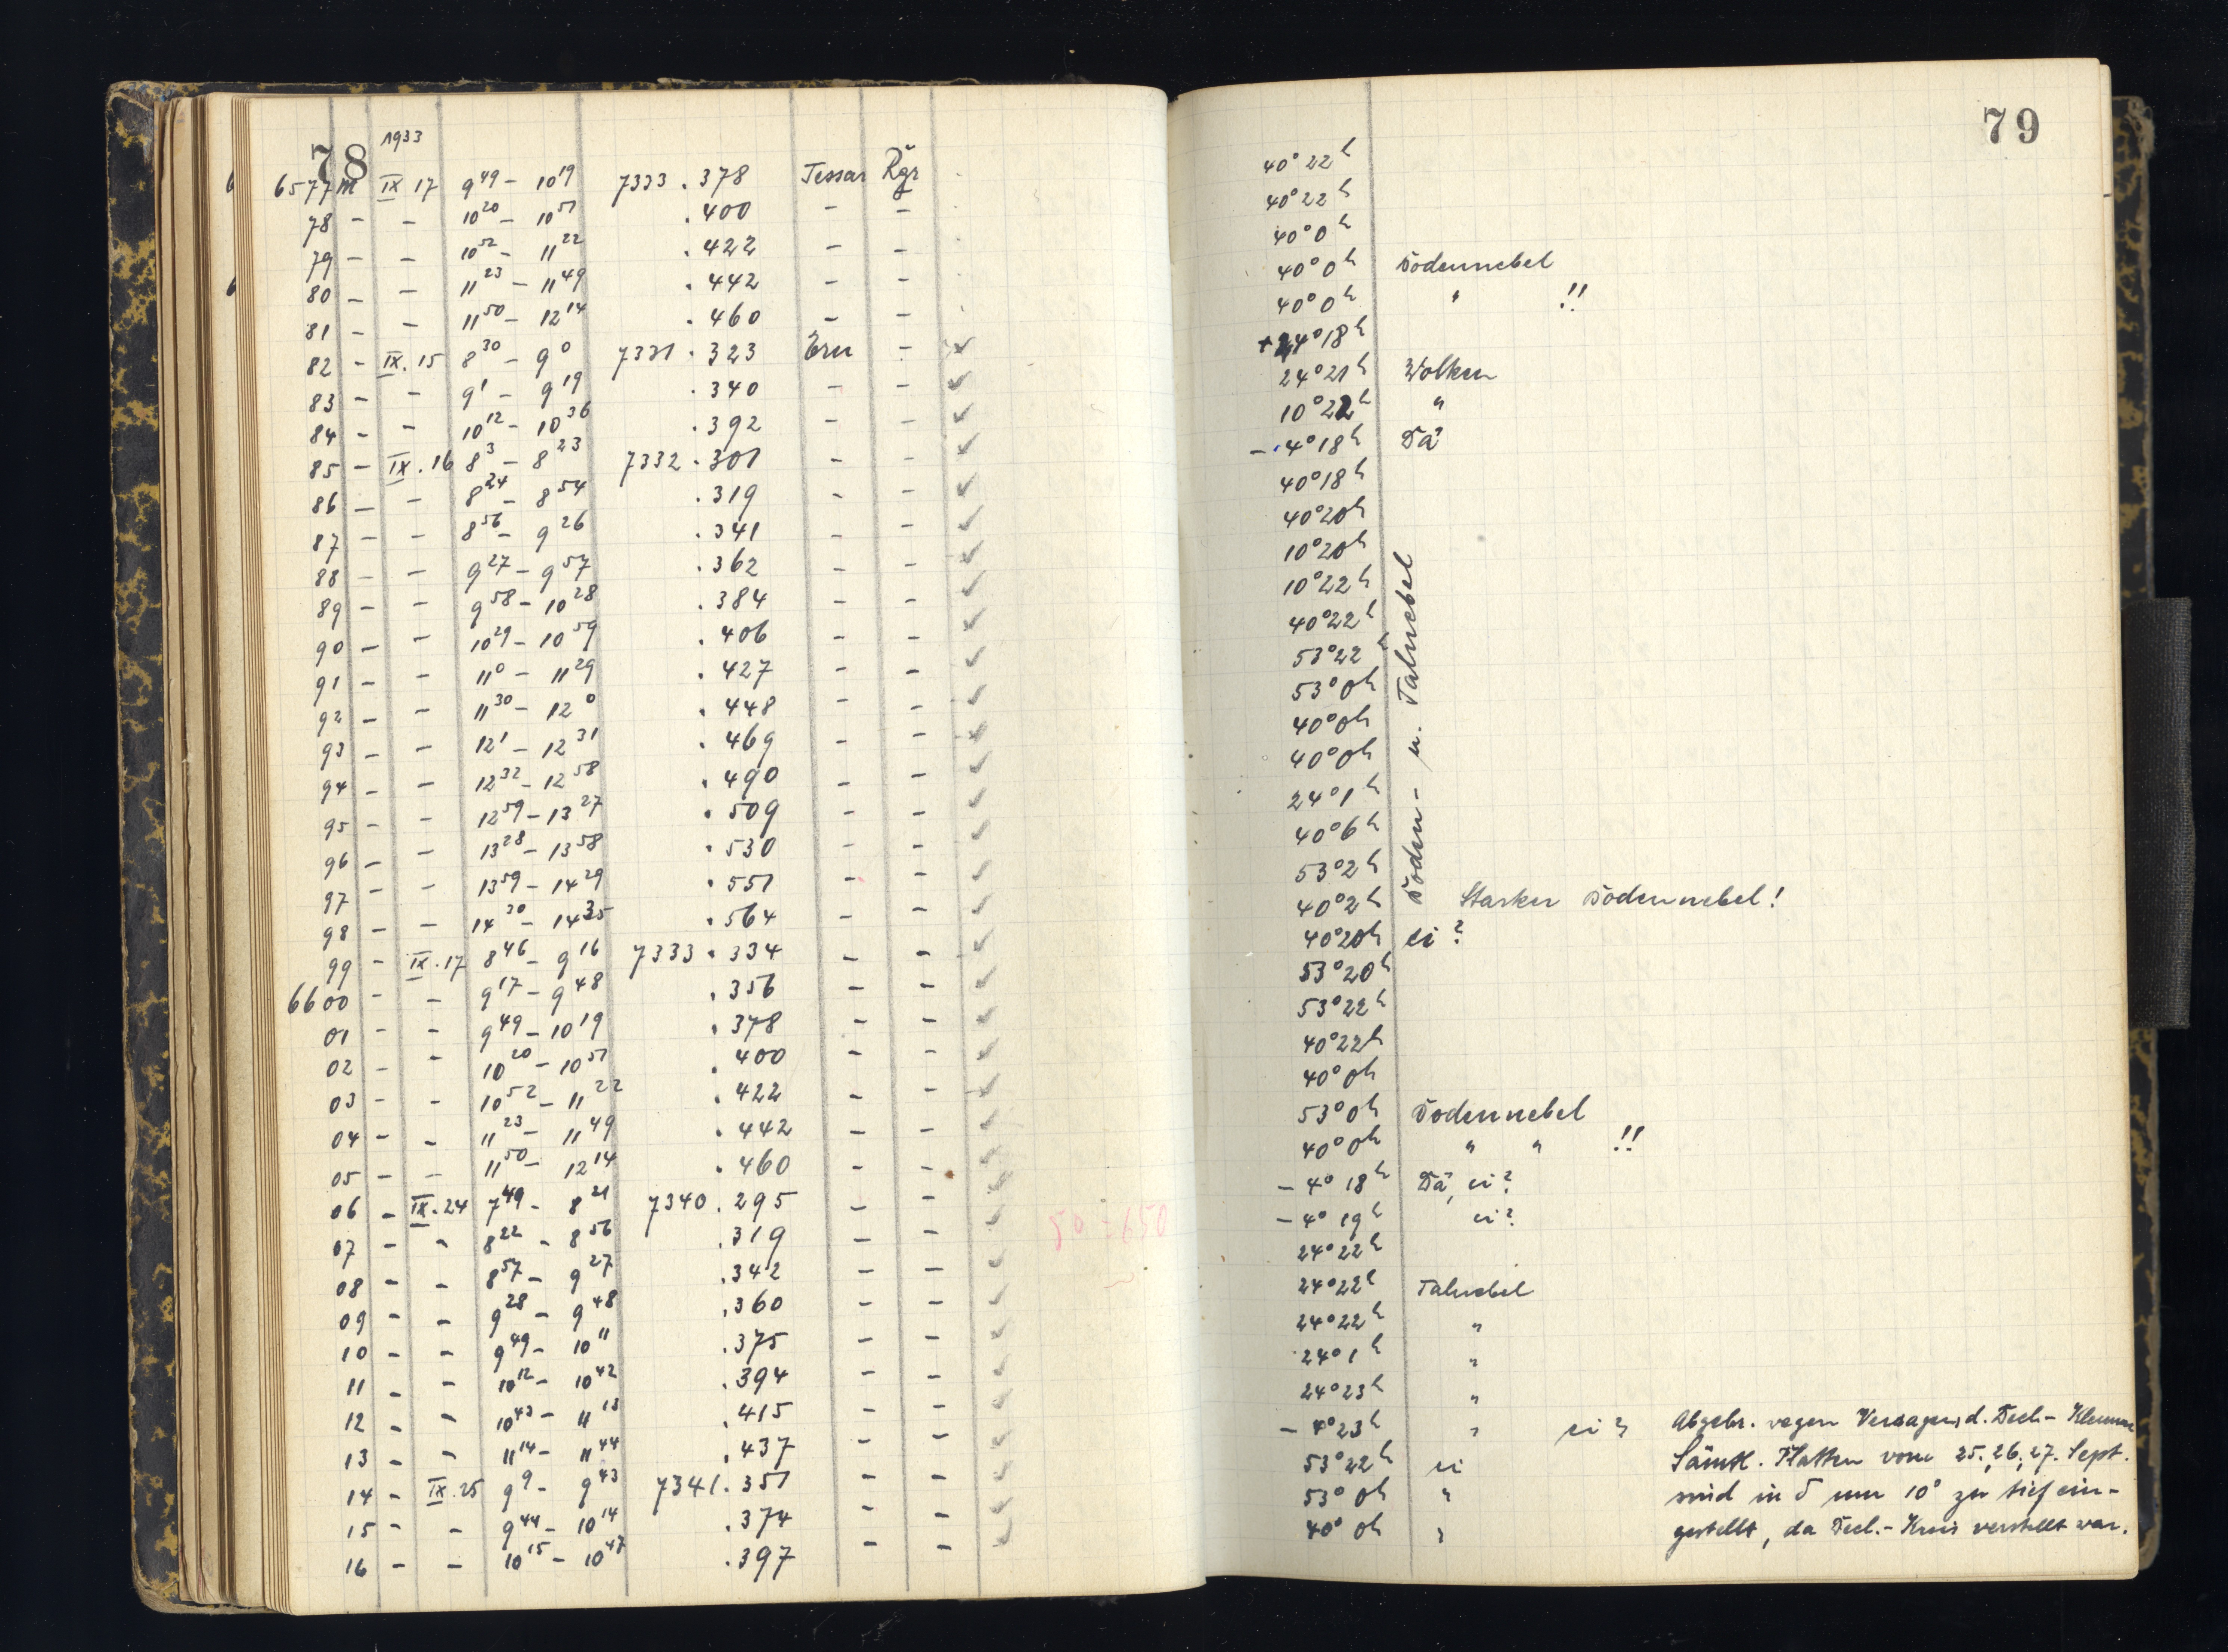 78 1933
6577 M IX 17 9⁴⁹ – 10¹⁹ 7333 . 378 Tessar Rgr
78 – – 10²⁰ – 10⁵¹ . 400 – –
79 – – 10⁵² – 11²² . 422 – –
80 – – 11²³ – 11⁴⁹ . 442 – –
81 – – 11⁵⁰ – 12¹⁴ . 460 – –
82 – IX. 15 8³⁰ – 9⁰ 7331 . 323 Ern – ✓
83 – – 9¹ – 9¹⁹ . 340 – – ✓
84 – – 10¹² – 10³⁶ . 392 – – ✓
85 – IX. 16 8³ – 8²³ 7332 . 301 – – ✓
86 – – 8²⁴ – 8⁵⁴ . 319 – – ✓
87 – – 8⁵⁶ – 9²⁶ . 341 – – ✓
88 – – 9²⁷ – 9⁵⁷ . 362 – – ✓
89 – – 9⁵⁸ – 10²⁸ . 384 – – ✓
90 – – 10²⁹ – 10⁵⁹ . 406 – – ✓
91 – – 11⁰ – 11²⁹ . 427 – – ✓
92 – – 11³⁰ – 12⁰ . 448 – – ✓
93 – – 12¹ – 12³¹ . 469 – – ✓
94 – – 12³² – 12⁵⁸ . 490 – – ✓
95 – – 12⁵⁹ – 13²⁷ . 509 – – ✓
96 – – 13²⁸ – 13⁵⁸ . 530 – – ✓
97 – – 13⁵⁹ – 14²⁹ . 551 – – ✓
98 – – 14³⁰ – 14³⁵ . 564 – – ✓
99 – IX. 17 8⁴⁶ – 9¹⁶ 7333 . 334 – – ✓
6600 – – 9¹⁷ – 9⁴⁸ . 356 – – ✓
01 – – 9⁴⁹ – 10¹⁹ . 378 – – ✓
02 – – 10²⁰ – 10⁵¹ . 400 – – ✓
03 – – 10⁵² – 11²² . 422 – – ✓
04 – – 11²³ – 11⁴⁹ . 442 – – ✓
05 – – 11⁵⁰ – 12¹⁴ . 460 – – ✓
06 – IX. 24 7⁴⁹ – 8²¹ 7340 . 295 – – ✓
07 – – 8²² – 8⁵⁶ . 319 – – ✓
08 – – 8⁵⁷ – 9²⁷ . 342 – – ✓
09 – – 9²⁸ – 9⁴⁸ . 360 – – ✓
10 – – 9⁴⁹ – 10¹¹ . 375 – – ✓
11 – – 10¹² – 10⁴² . 394 – – ✓
12 – – 10⁴³ – 11¹³ . 415 – – ✓
13 – – 11¹⁴ – 11⁴⁴ . 437 – – ✓
14 – IX. 25 9⁹ – 9⁴³ 7341 . 351 – – ✓
15 – – 9⁴⁴ – 10¹⁴ . 374 – – ✓
16 – – 10¹⁵ – 10⁴⁷ . 397 – – ✓
79
40° 22ʰ
40° 22ʰ
40° 0ʰ
40° 0ʰ Bodennebel
40° 0ʰ " !!
+24° 18ʰ
24° 21ʰ Wolken
10° 22ʰ "
– 4° 18ʰ Dä
40° 18ʰ
40° 20ʰ
10° 20ʰ
10° 22ʰ
40° 22ʰ
53° 22ʰ
53° 0ʰ
40° 0ʰ
40° 0ʰ
24° 1ʰ
40° 6ʰ
53° 2ʰ
Boden- u. Talnebel
40° 2ʰ Starker Bodennebel!
40° 20ʰ ei?
53° 20ʰ
53° 22ʰ
40° 22ʰ
40° 0ʰ
53° 0ʰ Bodennebel
40° 0ʰ " " !!
– 4° 18ʰ Dä, ei?
– 4° 19ʰ ei?
24° 22ʰ
24° 22ʰ Talnebel
24° 22ʰ "
24° 1ʰ "
24° 23ʰ "
– 4° 23ʰ " ei? Abgebr. wegen Versagens d. Decl.-Klemme
53° 22ʰ ei Sämtl. Platten vom 25., 26., 27. Sept.
53° 0ʰ " sind in δ um 10° zu tief ein-
40° 0ʰ " gestellt, da Decl.-Kreis verstellt war.